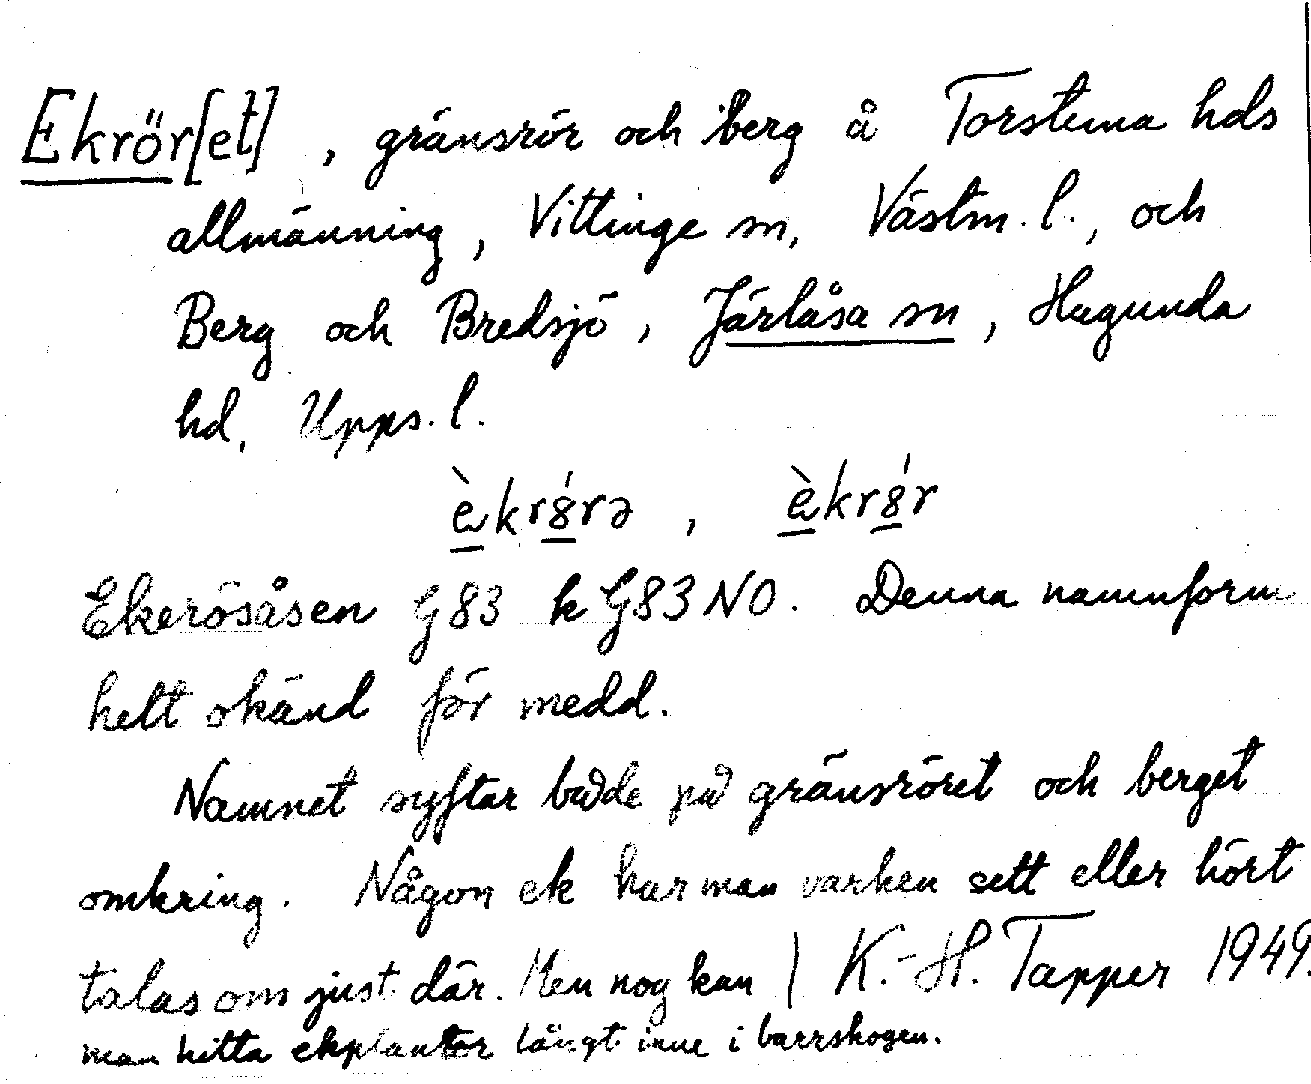 Ekrör[et], gränsrör och berg å Torstuna hds
allmänning, Vittinge sn, Västm. l., och
Berg och Bredsjö, Järlåsa sn, Hagunda
hd, Upps. l.
èkrȣ́rə, èkrȣ́r
Ekerösåsen G83 k G83 NO. Denna namnform
helt okänd för medd.
Namnet syftar både på gränsröret och berget
omkring. Någon ek har man varken sett eller hört
talas om just där. Men nog kan | K.-H. Tapper 1949.
man hitta ekplantor långt inne i barrskogen.